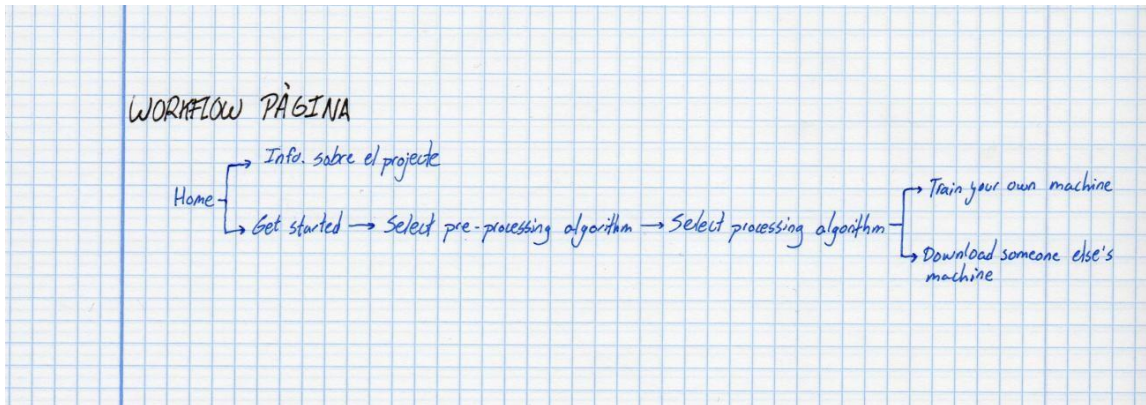 WORKFLOW PÀGINA
Info. sobre el projecte
Home
Get started → Select pre-processing algorithm → Select processing algorithm
Train your own machine
Download someone else's
machine